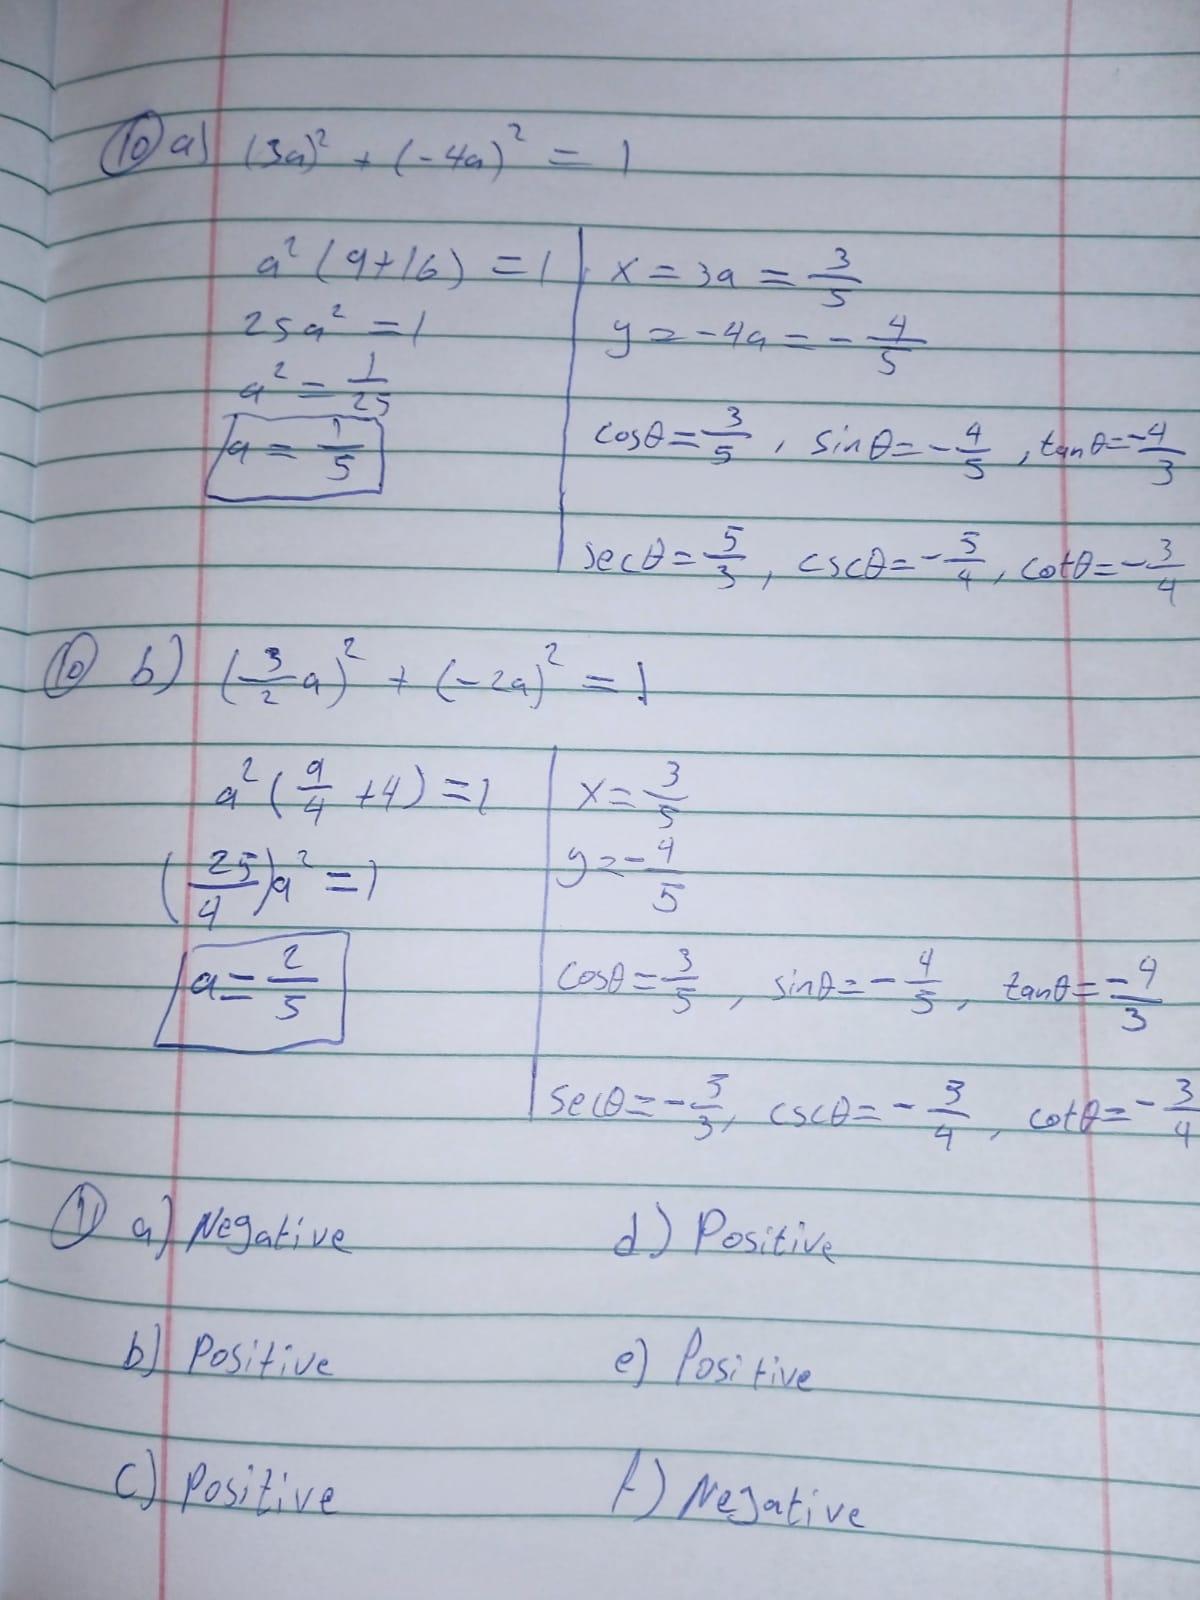 10 a) (3a)² + (-4a)² = 1
a² (9+16) = 1
25a² = 1
a² = 1/25
a = 1/5
x = 3a = 3/5
y = -4a = -4/5
cosθ = 3/5 , sinθ = -4/5 , tanθ = -4/3
secθ = 5/3 , cscθ = -5/4 , cotθ = -3/4
10 b) (3/2 a)² + (-2a)² = 1
a² (9/4 + 4) = 1
(25/4)a² = 1
a = 2/5
x = 3/5
y = -4/5
cosθ = 3/5 , sinθ = -4/5 , tanθ = -4/3
secθ = -5/3 , cscθ = -3/4 , cotθ = -3/4
a) Negative
b) Positive
c) Positive
d) Positive
e) Positive
f) Negative